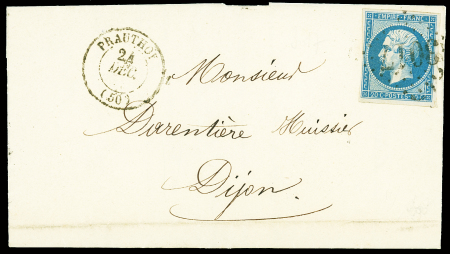 PRAUTHOY
24
DEC.
(50)
EMPIRE FRANC
20 C. POSTES 20 C.
Monsieur
Darentière Huissier
Dijon.